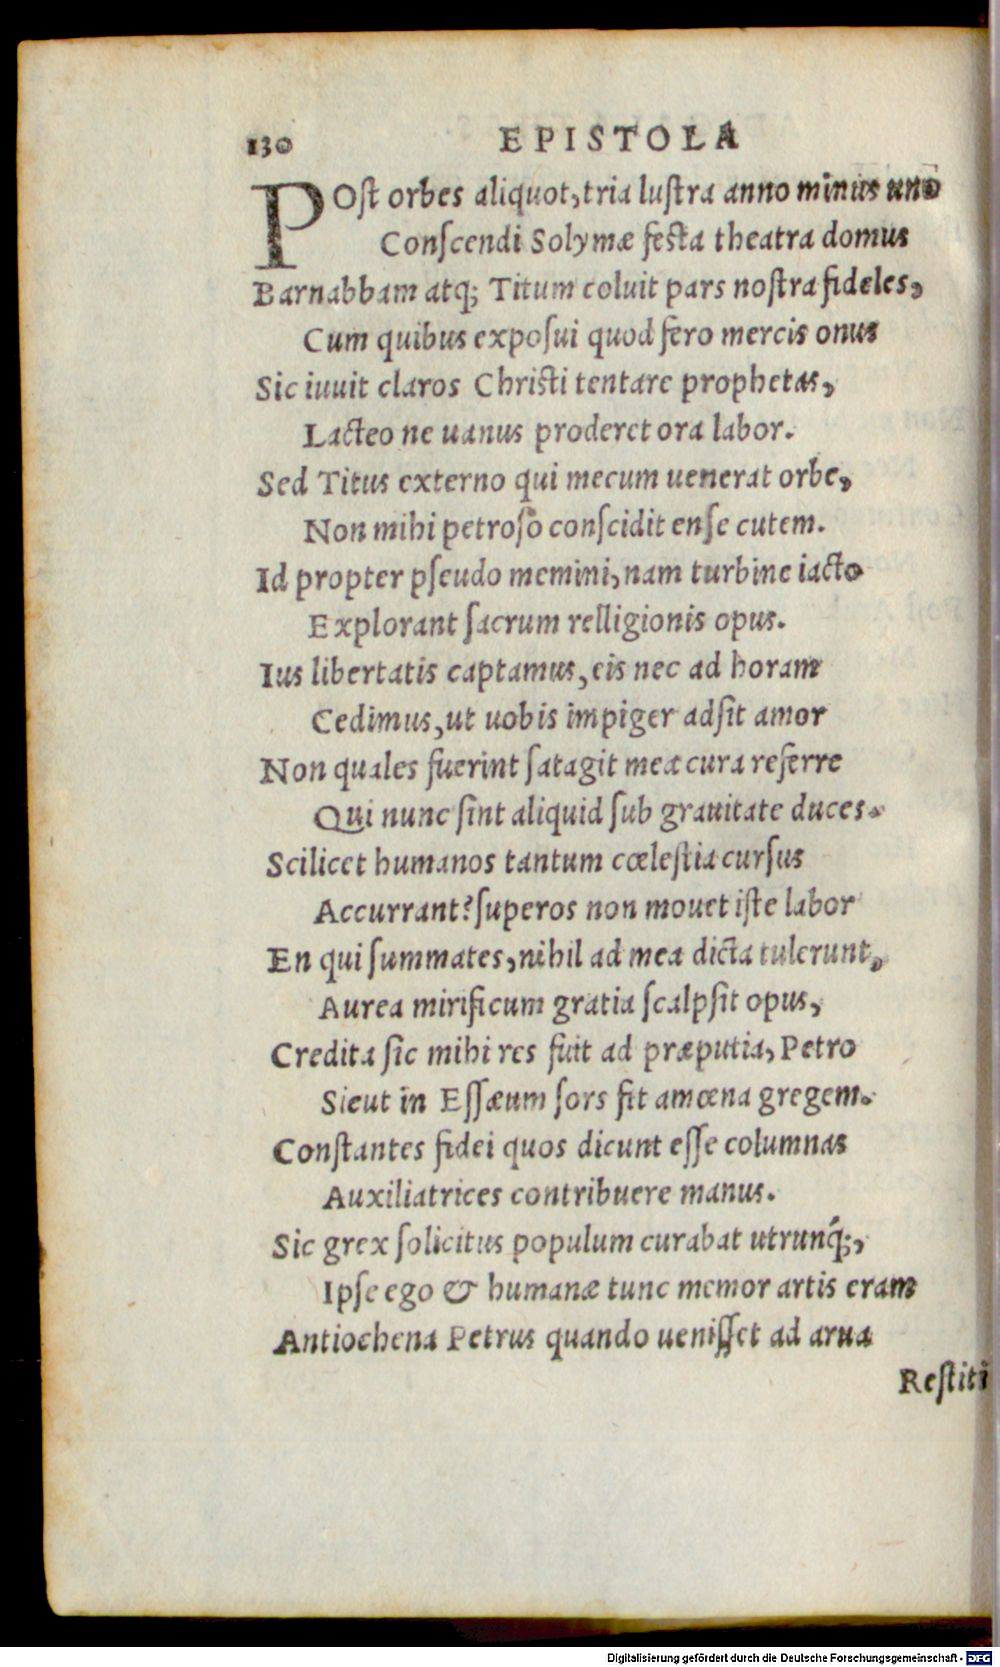 130 EPISTOLA
POſt orbes aliquot, tria luſtra anno minus uno
Conſcendi Solymæ feſta theatra domus
Barnabbam atq; Titum coluit pars noſtra fideles,
Cum quibus expoſui quod fero mercis onus
Sic iuuit claros Chriſti tentare prophetas,
Lacteo ne uanus proderet ora labor.
Sed Titus externo qui mecum uenerat orbe,
Non mihi petroſo conſcidit enſe cutem.
Id propter pſeudo memini, nam turbine iacto
Explorant ſacrum relligionis opus.
Ius libertatis captamus, eis nec ad horam
Cedimus, ut uobis impiger adſit amor
Non quales fuerint ſatagit mea cura referre
Qui nunc ſint aliquid ſub grauitate duces.
Scilicet humanos tantum cœleſtia curſus
Accurrant? ſuperos non mouet iſte labor
En qui ſummates, nihil ad mea dicta tulerunt,
Aurea mirificum gratia ſcalpſit opus,
Credita ſic mihi res fuit ad præputia, Petro
Sicut in Eſſæum ſors fit amœna gregem.
Conſtantes fidei quos dicunt eſſe columnas
Auxiliatrices contribuere manus.
Sic grex ſolicitus populum curabat utrunq́;,
Ipſe ego & humanæ tunc memor artis eram
Antiochena Petrus quando ueniſſet ad arua
Reſtiti
Digitalisierung gefördert durch die Deutsche Forschungsgemeinschaft - DFG